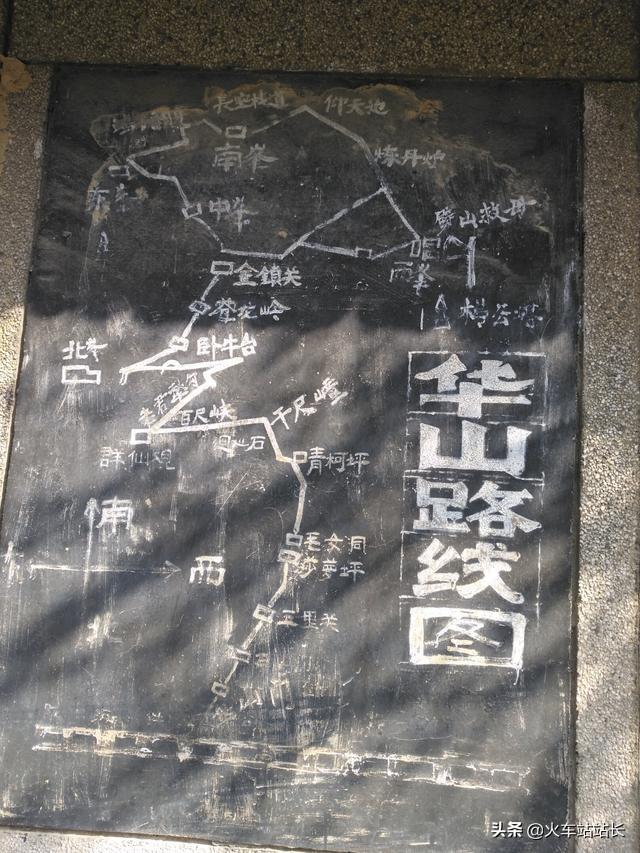 长空栈道
仰天地
南峯
炼丹炉
东峯
中峯
劈山救母
西峯
金鎖关
苍龙岭
卧牛台
北峯
百尺峡
千尺幢
回心石
群仙观
青柯坪
毛女洞
莎萝坪
三里关
南
西
北
华
山
路
线
图
头条 @火车站站长